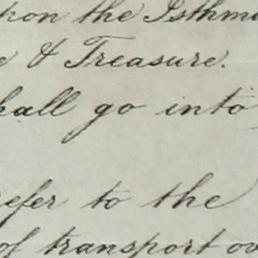 upon the Isthmu
e & Treasure.
hall go into
refer to the
of transport ov